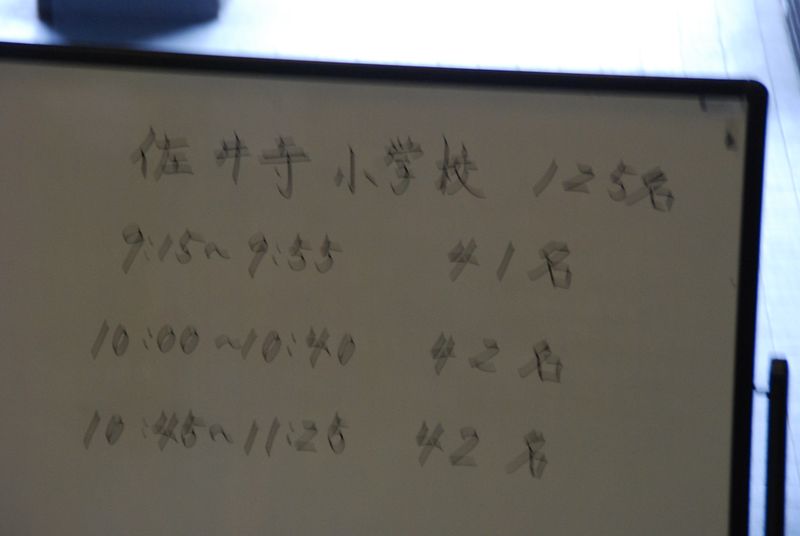 佐井寺小学校 125名
9:15~9:55 41名
10:00~10:40 42名
10:45~11:25 42名